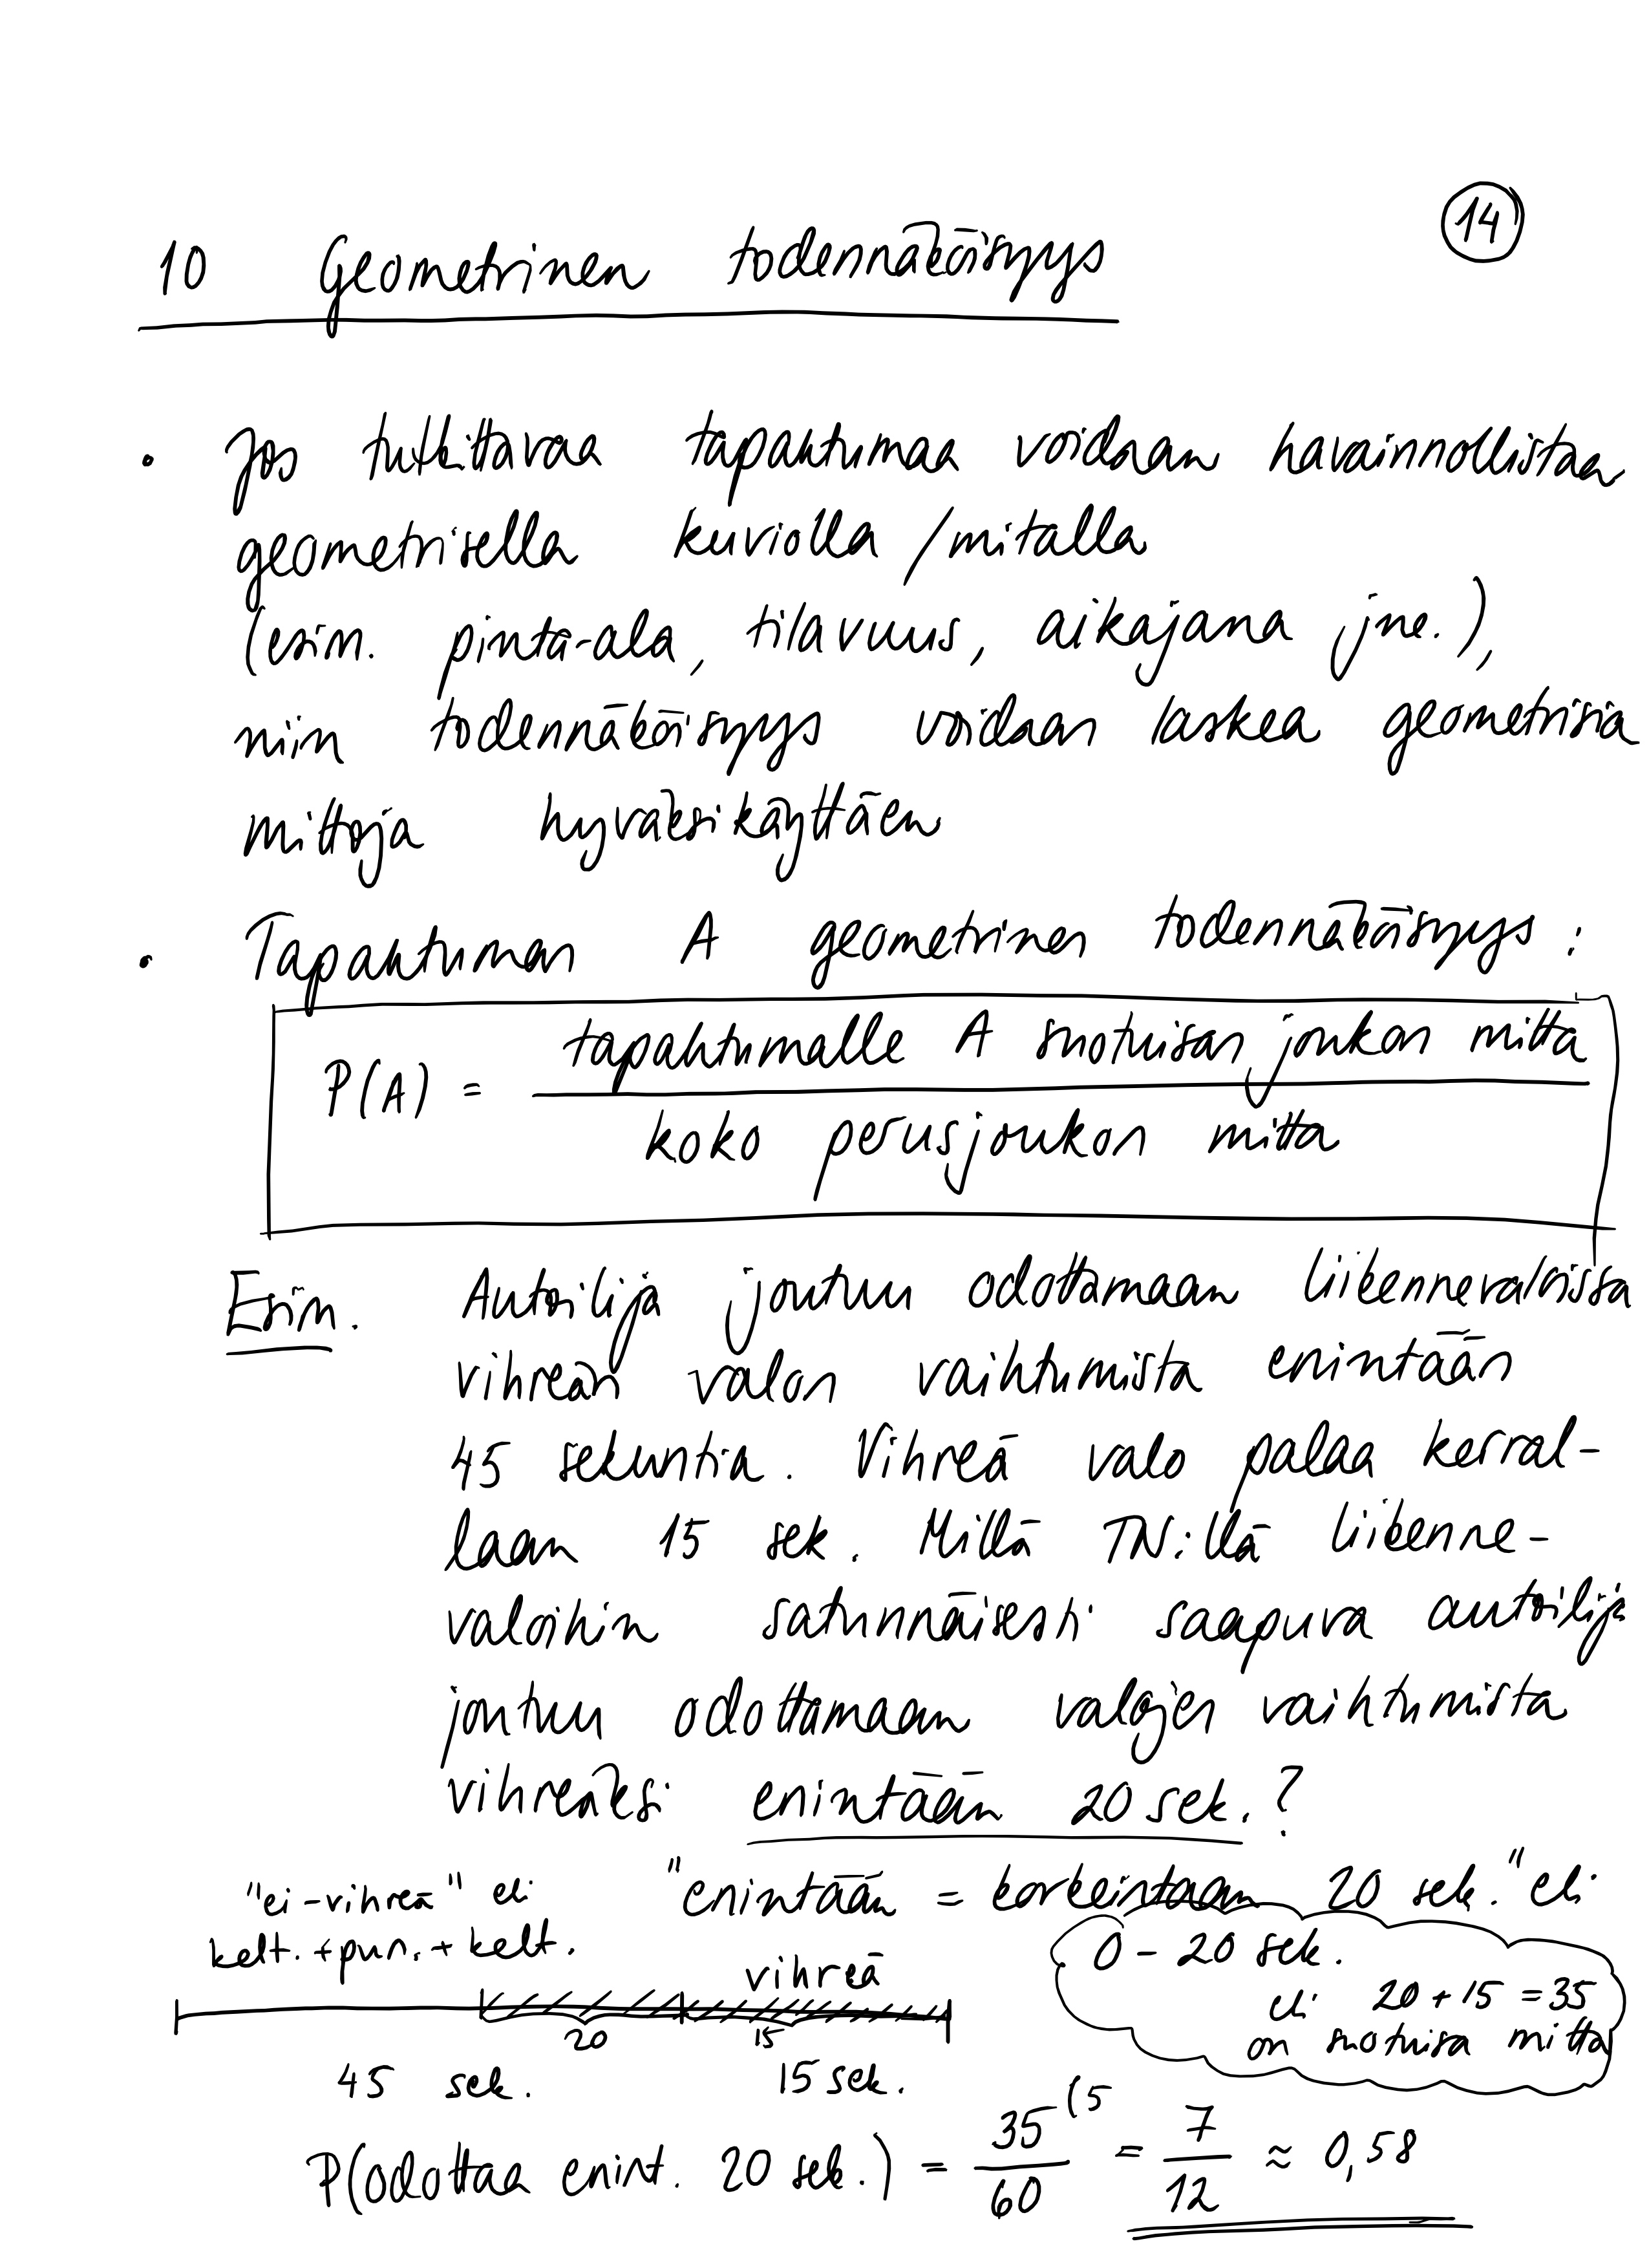 14
10 Geometrinen todennäköisyys
• Jos tutkittavaa tapahtumaa voidaan havainnollistaa
geometrisella kuviolla / mitalla
(esim. pinta-ala, tilavuus, aikajana jne.),
niin todennäköisyys voidaan laskea geometrisia
mittoja hyväksikäyttäen
• Tapahtuman A geometrinen todennäköisyys :
P(A) = tapahtumalle A suotuisan joukon mitta / koko perusjoukon mitta
Esim. Autoilija joutuu odottamaan liikennevaloissa
vihreän valon vaihtumista enintään
45 sekuntia. Vihreä valo palaa kerral-
laan 15 sek. Millä TN:llä liikenne-
valoihin satunnäisesti saapuva autoilija
joutuu odottamaan valojen vaihtumista
vihreäksi enintään 20 sek.?
"ei-vihreä" eli
kelt. + pun. + kelt.
"enintään = korkeintaan 20 sek." eli
0 - 20 sek.
eli 20 + 15 = 35
on suotuisa mitta
vihreä
20 15
45 sek. 15 sek.
P(odottaa enint. 20 sek.) = 35/60 (5 = 7/12 ≈ 0,58